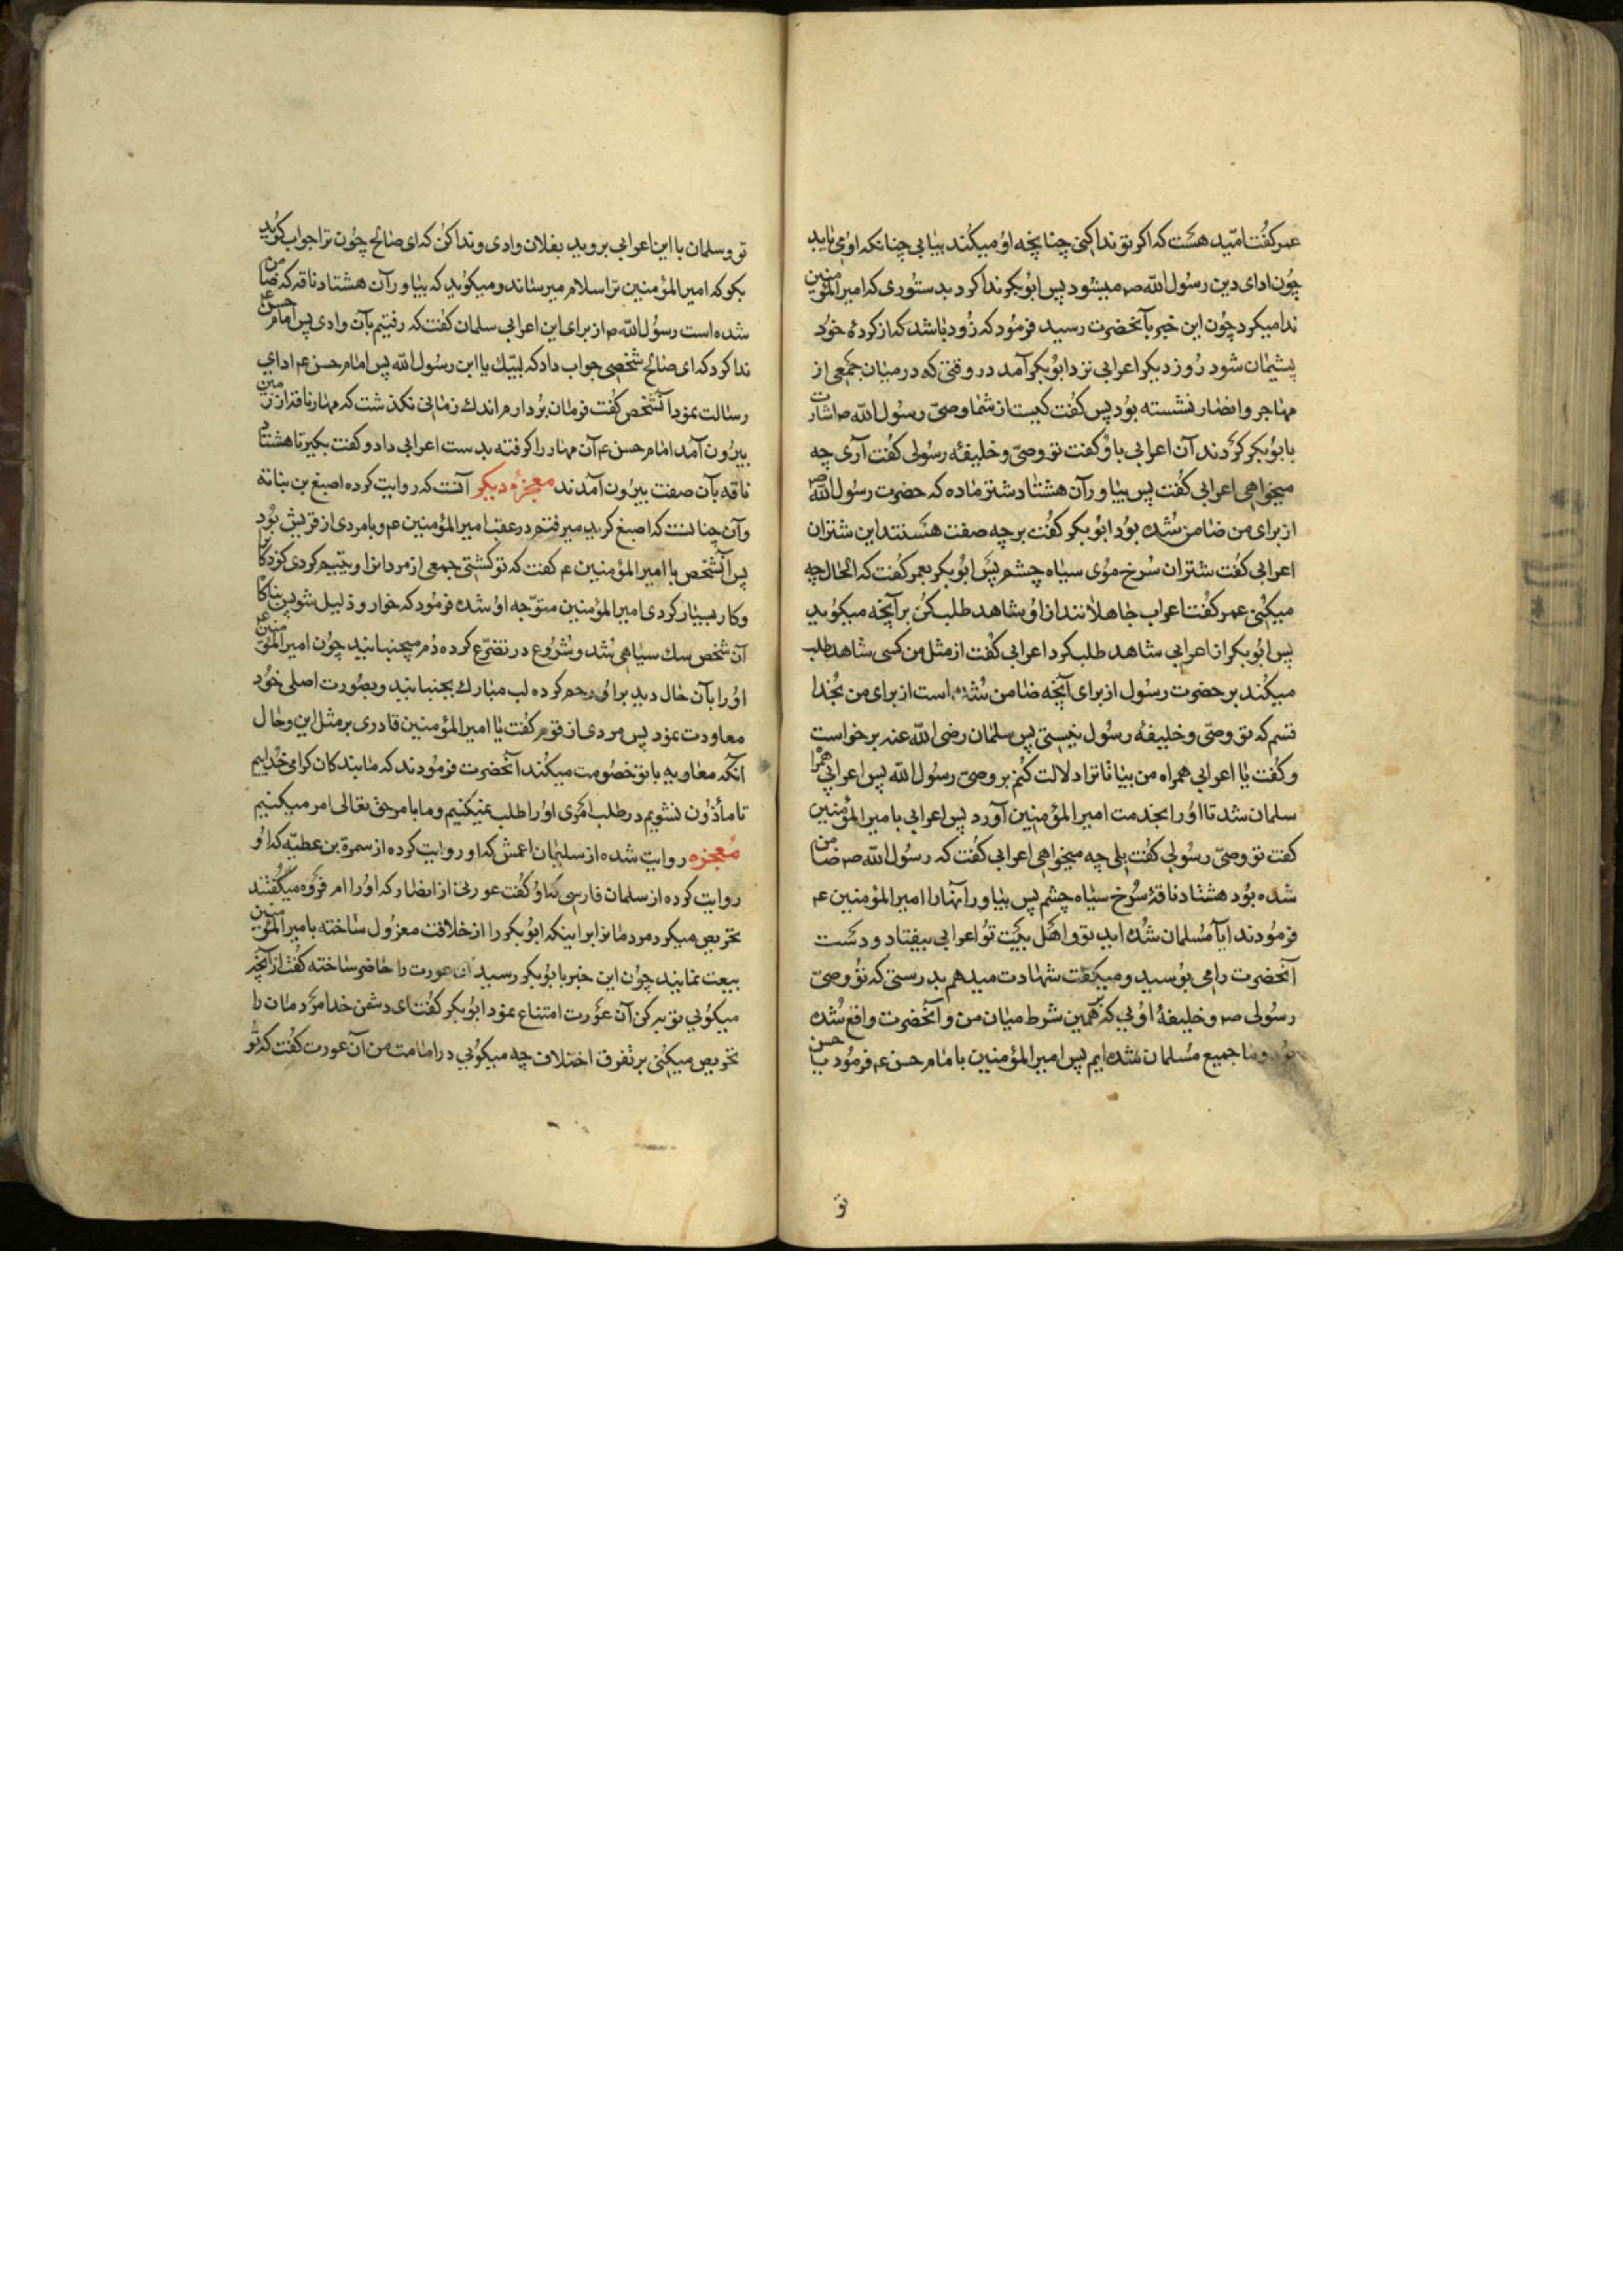 عمر کفت امّید هست که اکر تو ندا کنی چنانچه او میکند بیابی چنانکه او می یابد
چون ادای دین رسول الله صم میشود پس ابوبکر ندا کرد بدستوری که امیرالمؤمنین
ندا میکرد چون این خبر بآنحضرت رسید فرمود که زود باشد که از کردهٔ خود
پشیمان شود روز دیکر اعرابی نزد ابوبکر آمد در وقتی که در میان جمعی از
مهاجر و انصار نشسته بود پس کفت کیست از شما وصیّ رسول الله صم اشارت
بابوبکر کردند آن اعرابی باو کفت تو وصیّ و خلیفهٔ رسولی کفت آری چه
میخواهی اعرابی کفت پس بیاور آن هشتاد شتر ماده که حضرت رسول الله صم
از برای من ضامن شده بود ابوبکر کفت بر چه صفت هستند این شتران
اعرابی کفت شتران سرخ موی سیاه چشم پس ابوبکر بعمر کفت که الحال چه
میکنی عمر کفت اعراب جاهلانند از او شاهد طلب کن بر آنچه میکوید
پس ابوبکر از اعرابی شاهد طلب کرد اعرابی کفت از مثل من کسی شاهد طلب
میکند بر حضرت رسول از برای آنچه ضامن شده است از برای من بخدا
قسم که تو وصیّ و خلیفهٔ رسول نیستی پس سلمان رضی الله عنه برخواست
و کفت یا اعرابی همراه من بیا تا ترا دلالت کنم بر وصیّ رسول الله پس اعرابی همرا
سلمان شد تا او را بخدمت امیرالمؤمنین آورد پس اعرابی بامیرالمؤمنین
کفت تو وصیّ رسولی کفت بلی چه میخواهی اعرابی کفت که رسول الله صم ضامن
شده بود هشتاد ناقهٔ سرخ سیاه چشم پس بیاور آنها را امیرالمؤمنین عم
فرمودند ایا مسلمان شده اید تو و اهل بیت تو اعرابی بیفتاد و دست
آنحضرت را می بوسید و میکفت شهادت میدهم بدرستی که تو وصیّ
رسولی صم و خلیفهٔ اوئی که بر همین شرط میان من و آنحضرت واقع شده
بود و ما جمیع مسلمان شده ایم پس امیرالمؤمنین بامام حسن عم فرمود یا حسن
تو
تو و سلمان با این اعرابی بروید بفلان وادی و ندا کن که ای صالح چون ترا جواب کوید
بکو که امیرالمؤمنین ترا سلام میرساند و میکوید که بیاور آن هشتاد ناقه که ضامن
شده است رسول الله صم از برای این اعرابی سلمان کفت که رفتیم بآن وادی پس امام حسن عم
ندا کرد که ای صالح شخصی جواب داد که لبّیك یا ابن رسول الله پس امام حسن عم ادای
رسالت نمود آنشخص کفت فرمان بردارم اندك زمانی نکذشت که مهار ناقه از زمین
بیرون آمد امام حسن عم آن مهار را کرفته بدست اعرابی داد و کفت بکیر تا هشتاد
ناقه بآن صفت بیرون آمدند معجزهٔ دیکر آنست که روایت کرده اصبغ بن نباته
و آن چنانست که اصبغ کوید میرفتم در عقب امیرالمؤمنین عم و با مردی از قریش بود
پس آنشخص با امیرالمؤمنین عم کفت که تو کشتی جمعی از مردانرا و یتیم کردی کودکان
و کار بسیار کردی امیرالمؤمنین متوّجه او شده فرمود که خوار و ذلیل شو پس ناکاه
آن شخص سك سیاهی شد و شروع در تضرّع کرده دم میجنبانید چون امیرالمؤمنین عم
او را بآن حال دید برای رحم کرده لب مبارك بجنبانید و بصورت اصلی خود
معاودت نمود پس مردی از قوم کفت یا امیرالمؤمنین قادری بر مثل این و حال
آنکه معاویه با تو خصومت میکند آنحضرت فرمودند که ما بندکان کرامی خدائیم
تا مأذون نشویم در طلب امری او را طلب نمیکنیم و ما بامر حق تعالی امر میکنیم
معجزه روایت شده از سلیمان اعمش که او روایت کرده از سمرة بن عطیّه که او
روایت کرده از سلمان فارسی که او کفت عورتی از انصار که او را ام فروه میکفتند
تحریص میکرد مردمانرا بر اینکه ابوبکر را از خلافت معزول ساخته بامیرالمؤمنین
بیعت نمایند چون این خبر بابوبکر رسید آن عورت را حاضر ساخته کفت از آنچه
میکوئی توبه کن آن عورت امتناع نمود ابوبکر کفت ای دشمن خدا مردمان را
تحریص میکنی بر تفرق اختلاف چه میکوئی در امامت من آن عورت کفت که تو